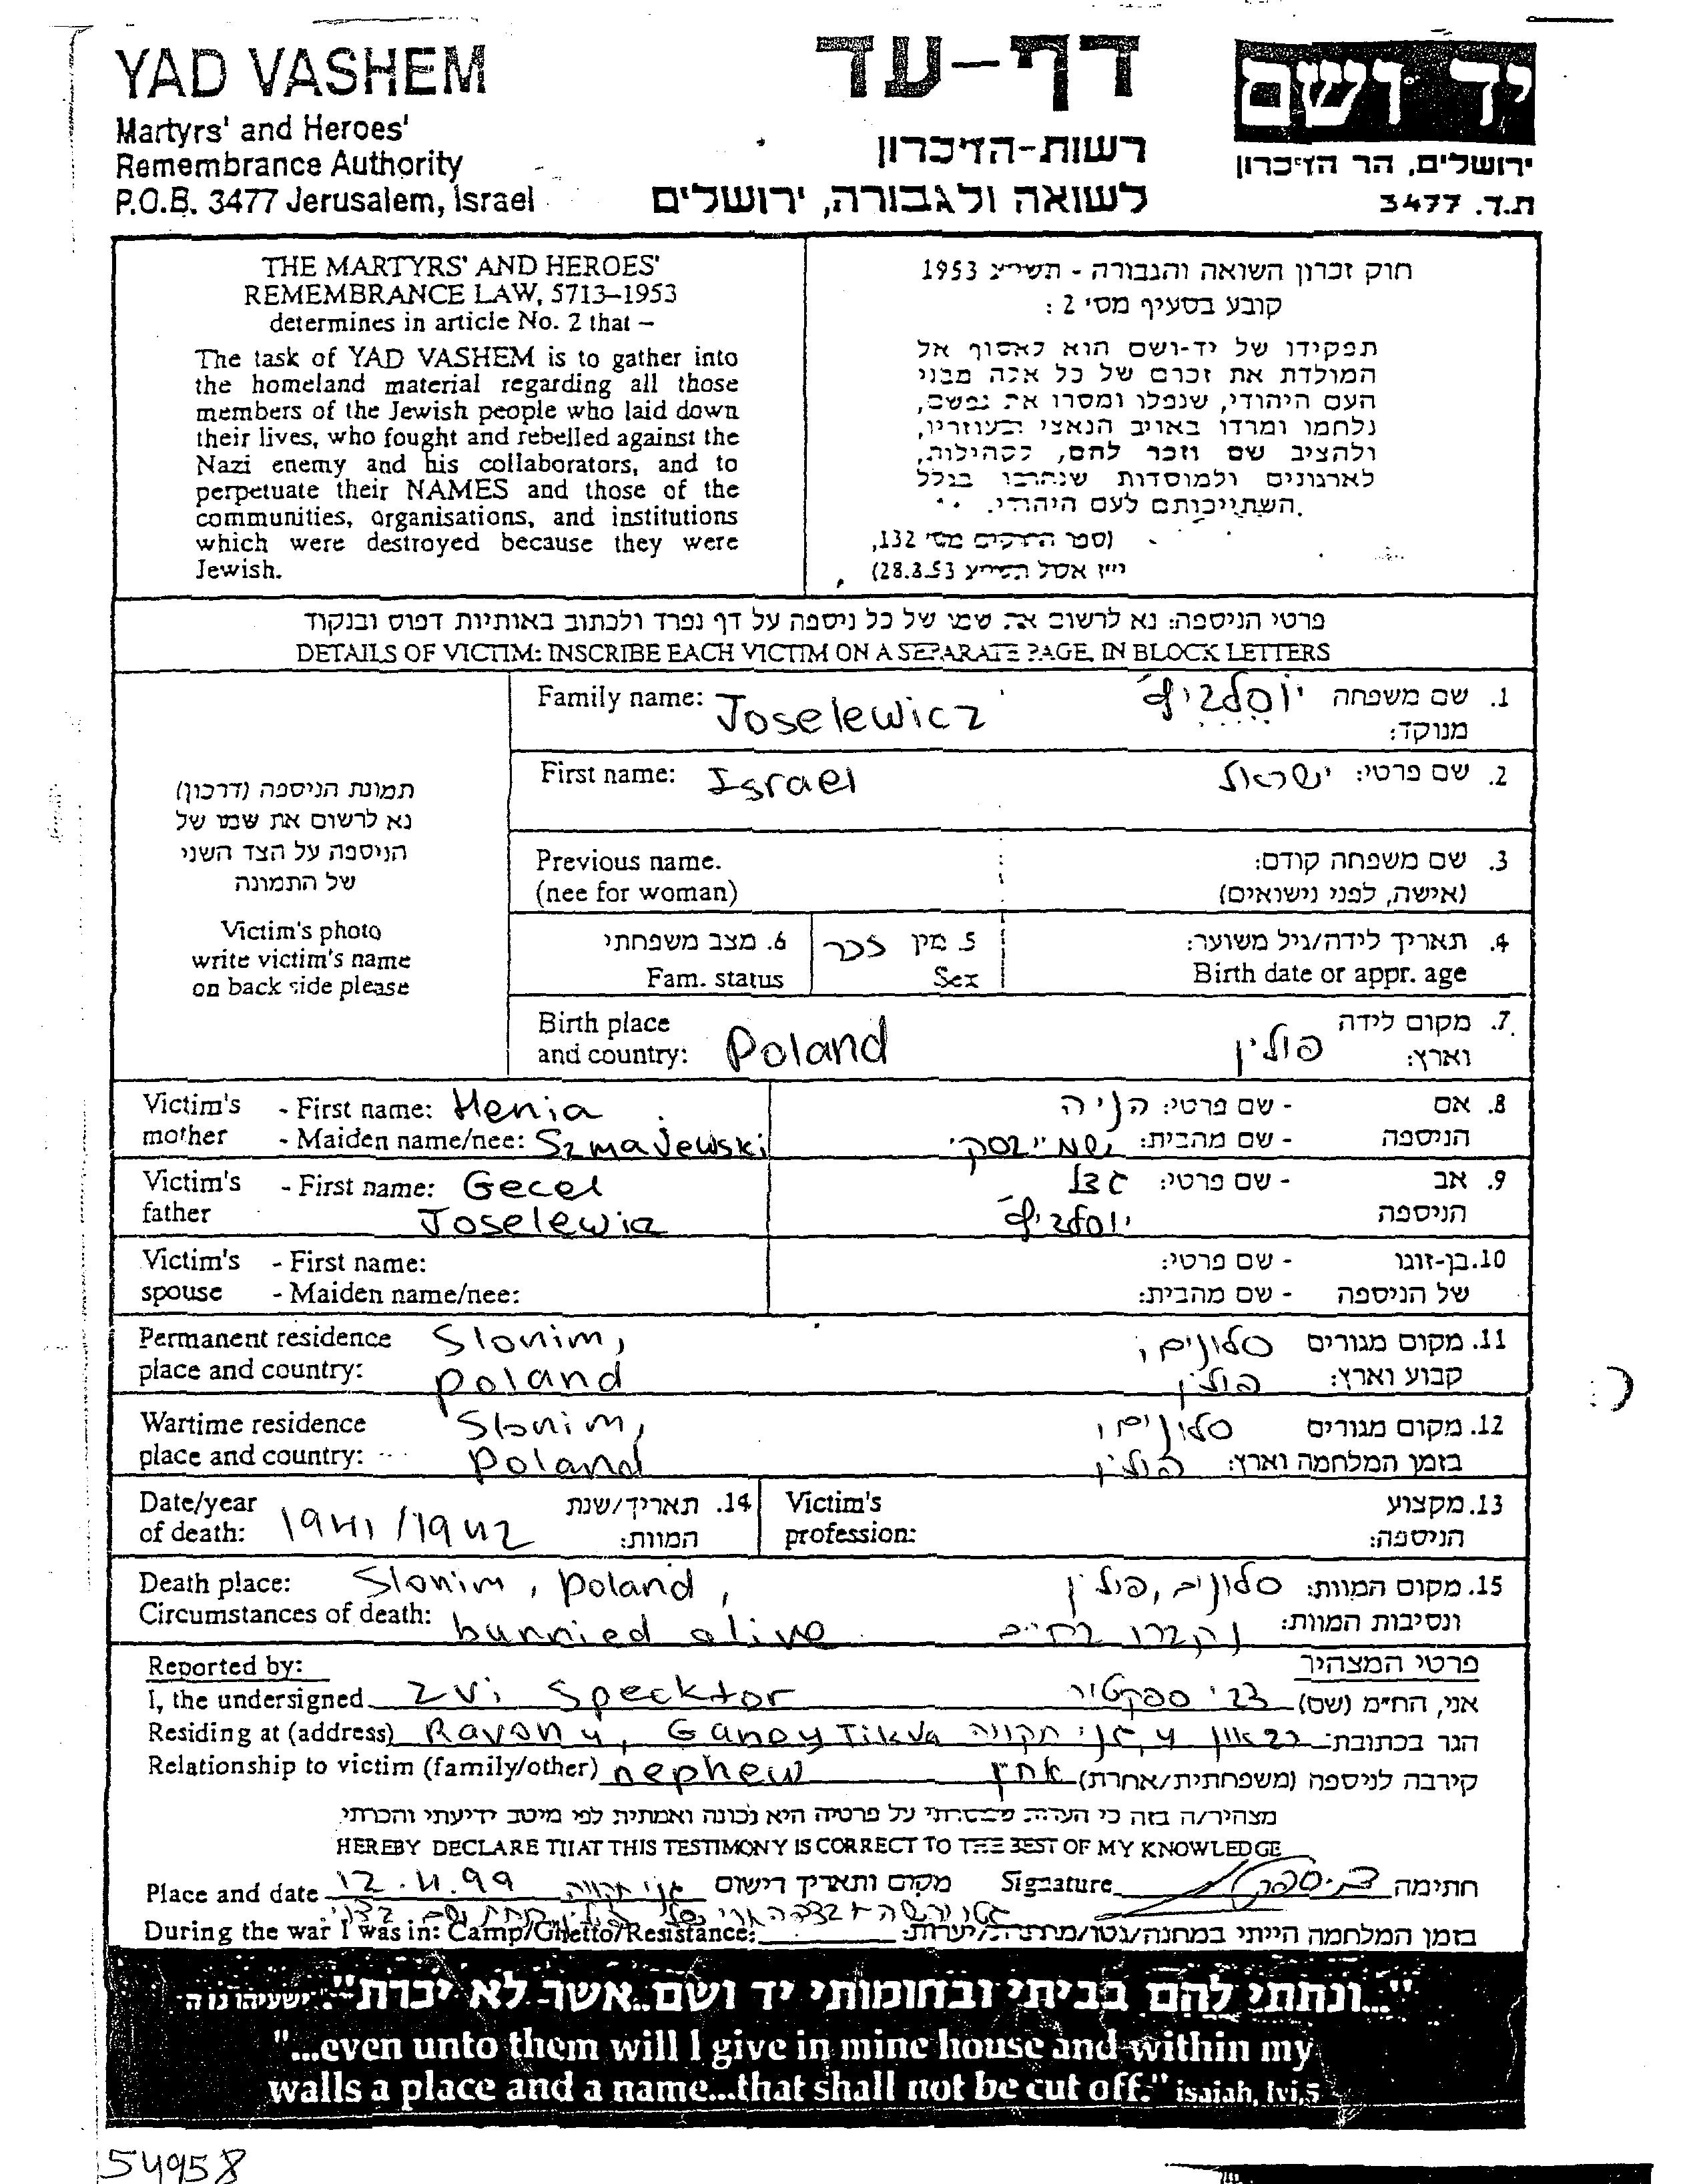 YAD VASHEM
Martyrs' and Heroes'
Remembrance Authority
P.O.B. 3477 Jerusalem, Israel
דף-עד
רשות-הזיכרון
לשואה ולגבורה, ירושלים
יד ושם
ירושלים, הר הזיכרון
ת.ד. 3477
THE MARTYRS' AND HEROES'
REMEMBRANCE LAW, 5713–1953
determines in article No. 2 that –
The task of YAD VASHEM is to gather into
the homeland material regarding all those
members of the Jewish people who laid down
their lives, who fought and rebelled against the
Nazi enemy and his collaborators, and to
perpetuate their NAMES and those of the
communities, organisations, and institutions
which were destroyed because they were
Jewish.
חוק זכרון השואה והגבורה - תשי״ג 1953
קובע בסעיף מס׳ 2 :
תפקידו של יד-ושם הוא לאסוף אל
המולדת את זכרם של כל אלה מבני
העם היהודי, שנפלו ומסרו את נפשם,
נלחמו ומרדו באויב הנאצי ובעוזריו,
ולהציב שם וזכר להם, לקהילות,
לארגונים ולמוסדות שנחרבו בגלל
השתייכותם לעם היהודי.
(ספר החוקים מס׳ 132,
י״ז אלול תשי״ג 28.8.53)
פרטי הניספה: נא לרשום את שמו של כל ניספה על דף נפרד ולכתוב באותיות דפוס ובנקוד
DETAILS OF VICTIM: INSCRIBE EACH VICTIM ON A SEPARATE PAGE, IN BLOCK LETTERS
תמונת הניספה (דרכון)
נא לרשום את שמו של
הניספה על הצד השני
של התמונה
Victim's photo
write victim's name
on back side please
Family name: Joselewicz יוסלביץ׳ 1. שם משפחה
מנוקד:
First name: Israel ישראל 2. שם פרטי:
Previous name. 3. שם משפחה קודם:
(nee for woman) (אישה, לפני נישואים)
6. מצב משפחתי 5 מין זכר 4. תאריך לידה/גיל משוער:
Fam. status Sex Birth date or appr. age
Birth place 7. מקום לידה
and country: Poland פולין וארץ:
Victim's - First name: Henia הניה - שם פרטי: 8. אם
mother - Maiden name/nee: Szmajewski שמייבסקי - שם מהבית: הניספה
Victim's - First name: Gecel גצל - שם פרטי: 9. אב
father Joselewicz יוסלביץ׳ הניספה
Victim's - First name: - שם פרטי: 10. בן-זוגו
spouse - Maiden name/nee: - שם מהבית: של הניספה
Permanent residence Slonim, סלונים, 11. מקום מגורים
place and country: Poland פולין קבוע וארץ:
Wartime residence Slonim, סלונים, 12. מקום מגורים
place and country: Poland פולין בזמן המלחמה וארץ:
Date/year 14. תאריך/שנת Victim's 13. מקצוע
of death: 1941/1942 המוות: profession: הניספה:
Death place: Slonim, Poland, סלונים, פולין 15. מקום המוות:
Circumstances of death: burried alive נקברו בחיים ונסיבות המוות:
Reported by: פרטי המצהיר
I, the undersigned Zvi Specktor צבי ספקטור אני, הח״מ (שם)
Residing at (address) Ravon 4, Ganey Tikva 4, גני תקווה הגר בכתובת:
Relationship to victim (family/other) nephew אחין קירבה לניספה (משפחתית/אחרת)
מצהיר/ה בזה כי העדות שמסרתי על פרטיה היא נכונה ואמתית לפי מיטב ידיעתי והכרתי
HEREBY DECLARE THAT THIS TESTIMONY IS CORRECT TO THE BEST OF MY KNOWLEDGE
Place and date 12.4.99 גני תקווה מקום ותאריך רישום Signature חתימה
During the war I was in: Camp/Ghetto/Resistance: בזמן המלחמה הייתי במחנה/גטו/מחתרת/יערות:
"...ונתתי להם בביתי ובחומותי יד ושם..אשר לא יכרת" ישעיהו נו ה
"...even unto them will I give in mine house and within my
walls a place and a name...that shall not be cut off." isaiah, lvi,5
54958